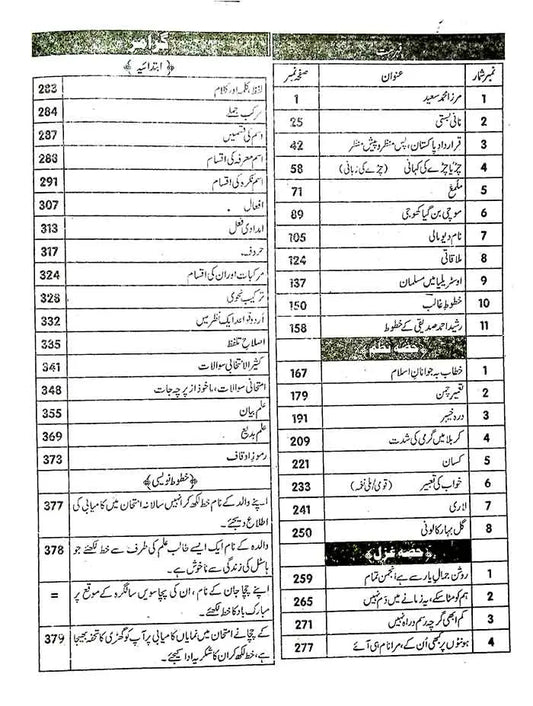 فہرست
نمبر شمار عنوان صفحہ نمبر
1 مرزا محمد سعید 1
2 نانی ہستی 25
3 قرارداد پاکستان، پس منظر و پیش منظر 42
4 چڑیا چڑے کی کہانی (چڑے کی زبانی) 58
5 ملمع 71
6 موچی بن گیا کھوجی 89
7 نام دیومالی 105
8 ملاقاتی 124
9 اوسٹریلیا میں مسلمان 137
10 خطوط غالب 150
11 رشید احمد صدیقی کے خطوط 158
حصہ نظم
1 خطاب بہ جوانان اسلام 167
2 تعمیر چمن 179
3 درہ خیبر 191
4 کربلا میں گرمی کی شدت 209
5 کسان 221
6 خواب کی تعبیر (قومی / ملی نغمہ) 233
7 241
8 گل بہار کالونی 250
﴿حصہ غزل﴾
1 روشن جمال یار سے ہے انجمن تمام 259
2 ہم کو مٹا سکے، یہ زمانے میں دم نہیں 265
3 کم ابھی گرچہ رسم و راہ نہیں 271
4 ہونٹوں پر کبھی اُن کے، مرا نام ہی آئے 277
گرامر
﴿ابتدائیہ﴾
لفظ، کلمہ اور کلام 283
مرکب جملے 284
اسم کی قسمیں 287
اسم معرفہ کی اقسام 288
اسم نکرہ کی اقسام 291
افعال 307
امدادی فعل 313
حروف 317
مرکبات اور ان کی اقسام 324
ترکیب نحوی 328
اردو قواعد ایک نظر میں 332
اصلاح تلفظ 335
کثیر الانتخابی سوالات 341
امتحانی سوالات، ماخوذ از پرچہ جات 348
علم بیان 355
علم بدیع 369
رموز اوقاف 373
﴿خطوط نویسی﴾
اپنے والد کے نام خط لکھ کر انہیں سالانہ امتحان میں کامیابی کی 377
اطلاع دیجئے۔
والدہ کے نام ایک ایسے طالب علم کی طرف سے خط لکھئے جو 378
ہاسٹل کی زندگی سے ناخوش ہے۔
اپنے چچا جان کے نام، ان کی پچاسویں سالگرہ کے موقع پر =
مبارک باد کا خط لکھئے۔
کے چچا نے امتحان میں نمایاں کامیابی پر آپ کو گھڑی کا تحفہ بھیجا 379
ہے، خط لکھ کر ان کا شکریہ ادا کیجئے۔